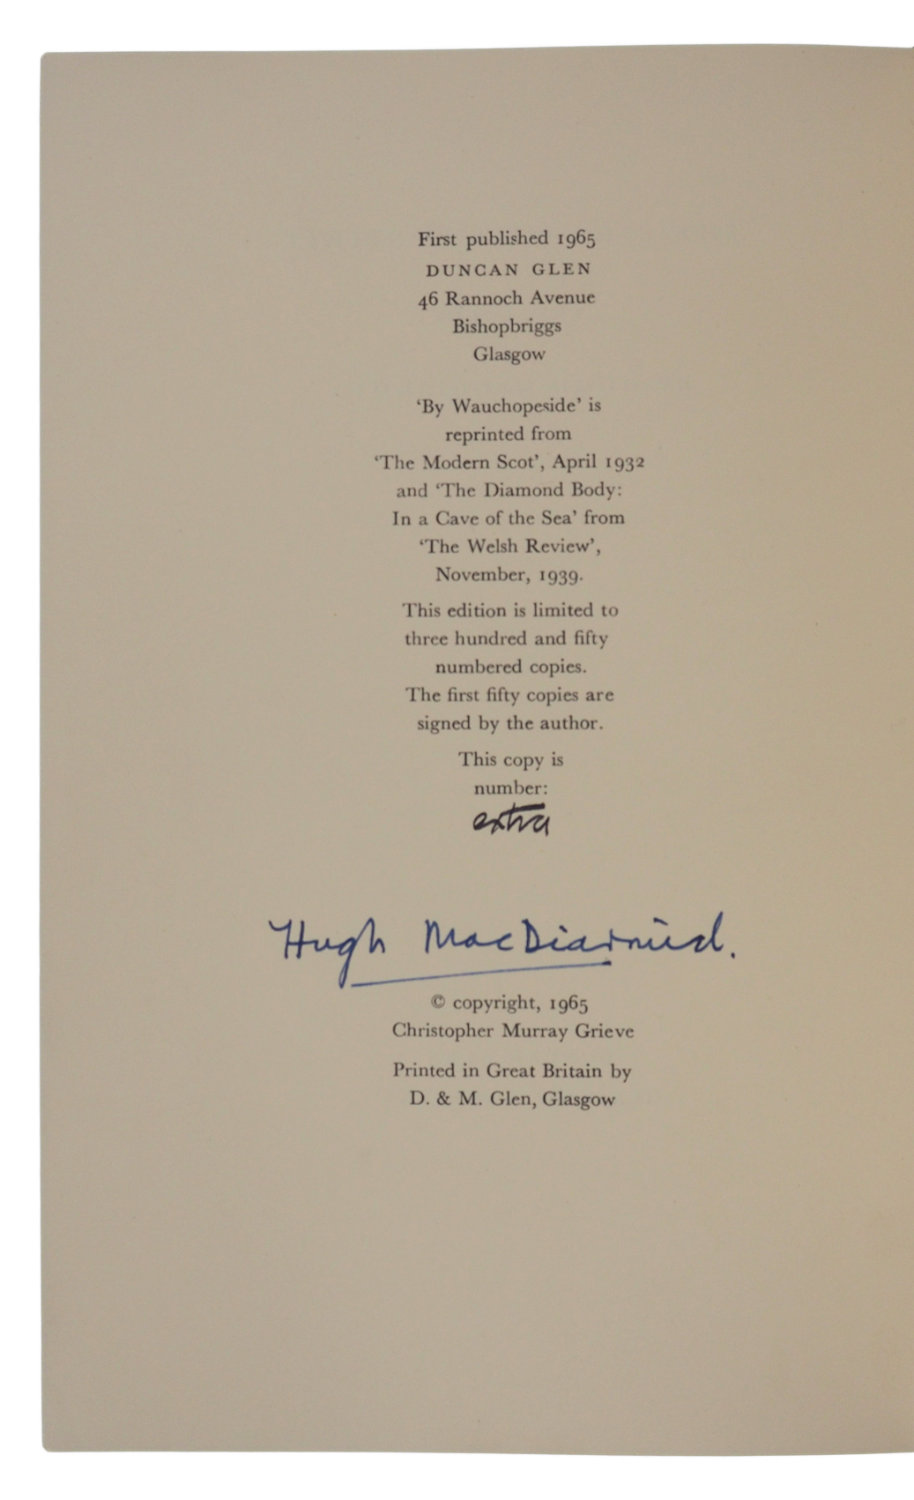 First published 1965
DUNCAN GLEN
46 Rannoch Avenue
Bishopbriggs
Glasgow
‘By Wauchopeside’ is
reprinted from
‘The Modern Scot’, April 1932
and ‘The Diamond Body:
In a Cave of the Sea’ from
‘The Welsh Review’,
November, 1939.
This edition is limited to
three hundred and fifty
numbered copies.
The first fifty copies are
signed by the author.
This copy is
number:
extra
Hugh MacDiarmid.
© copyright, 1965
Christopher Murray Grieve
Printed in Great Britain by
D. & M. Glen, Glasgow